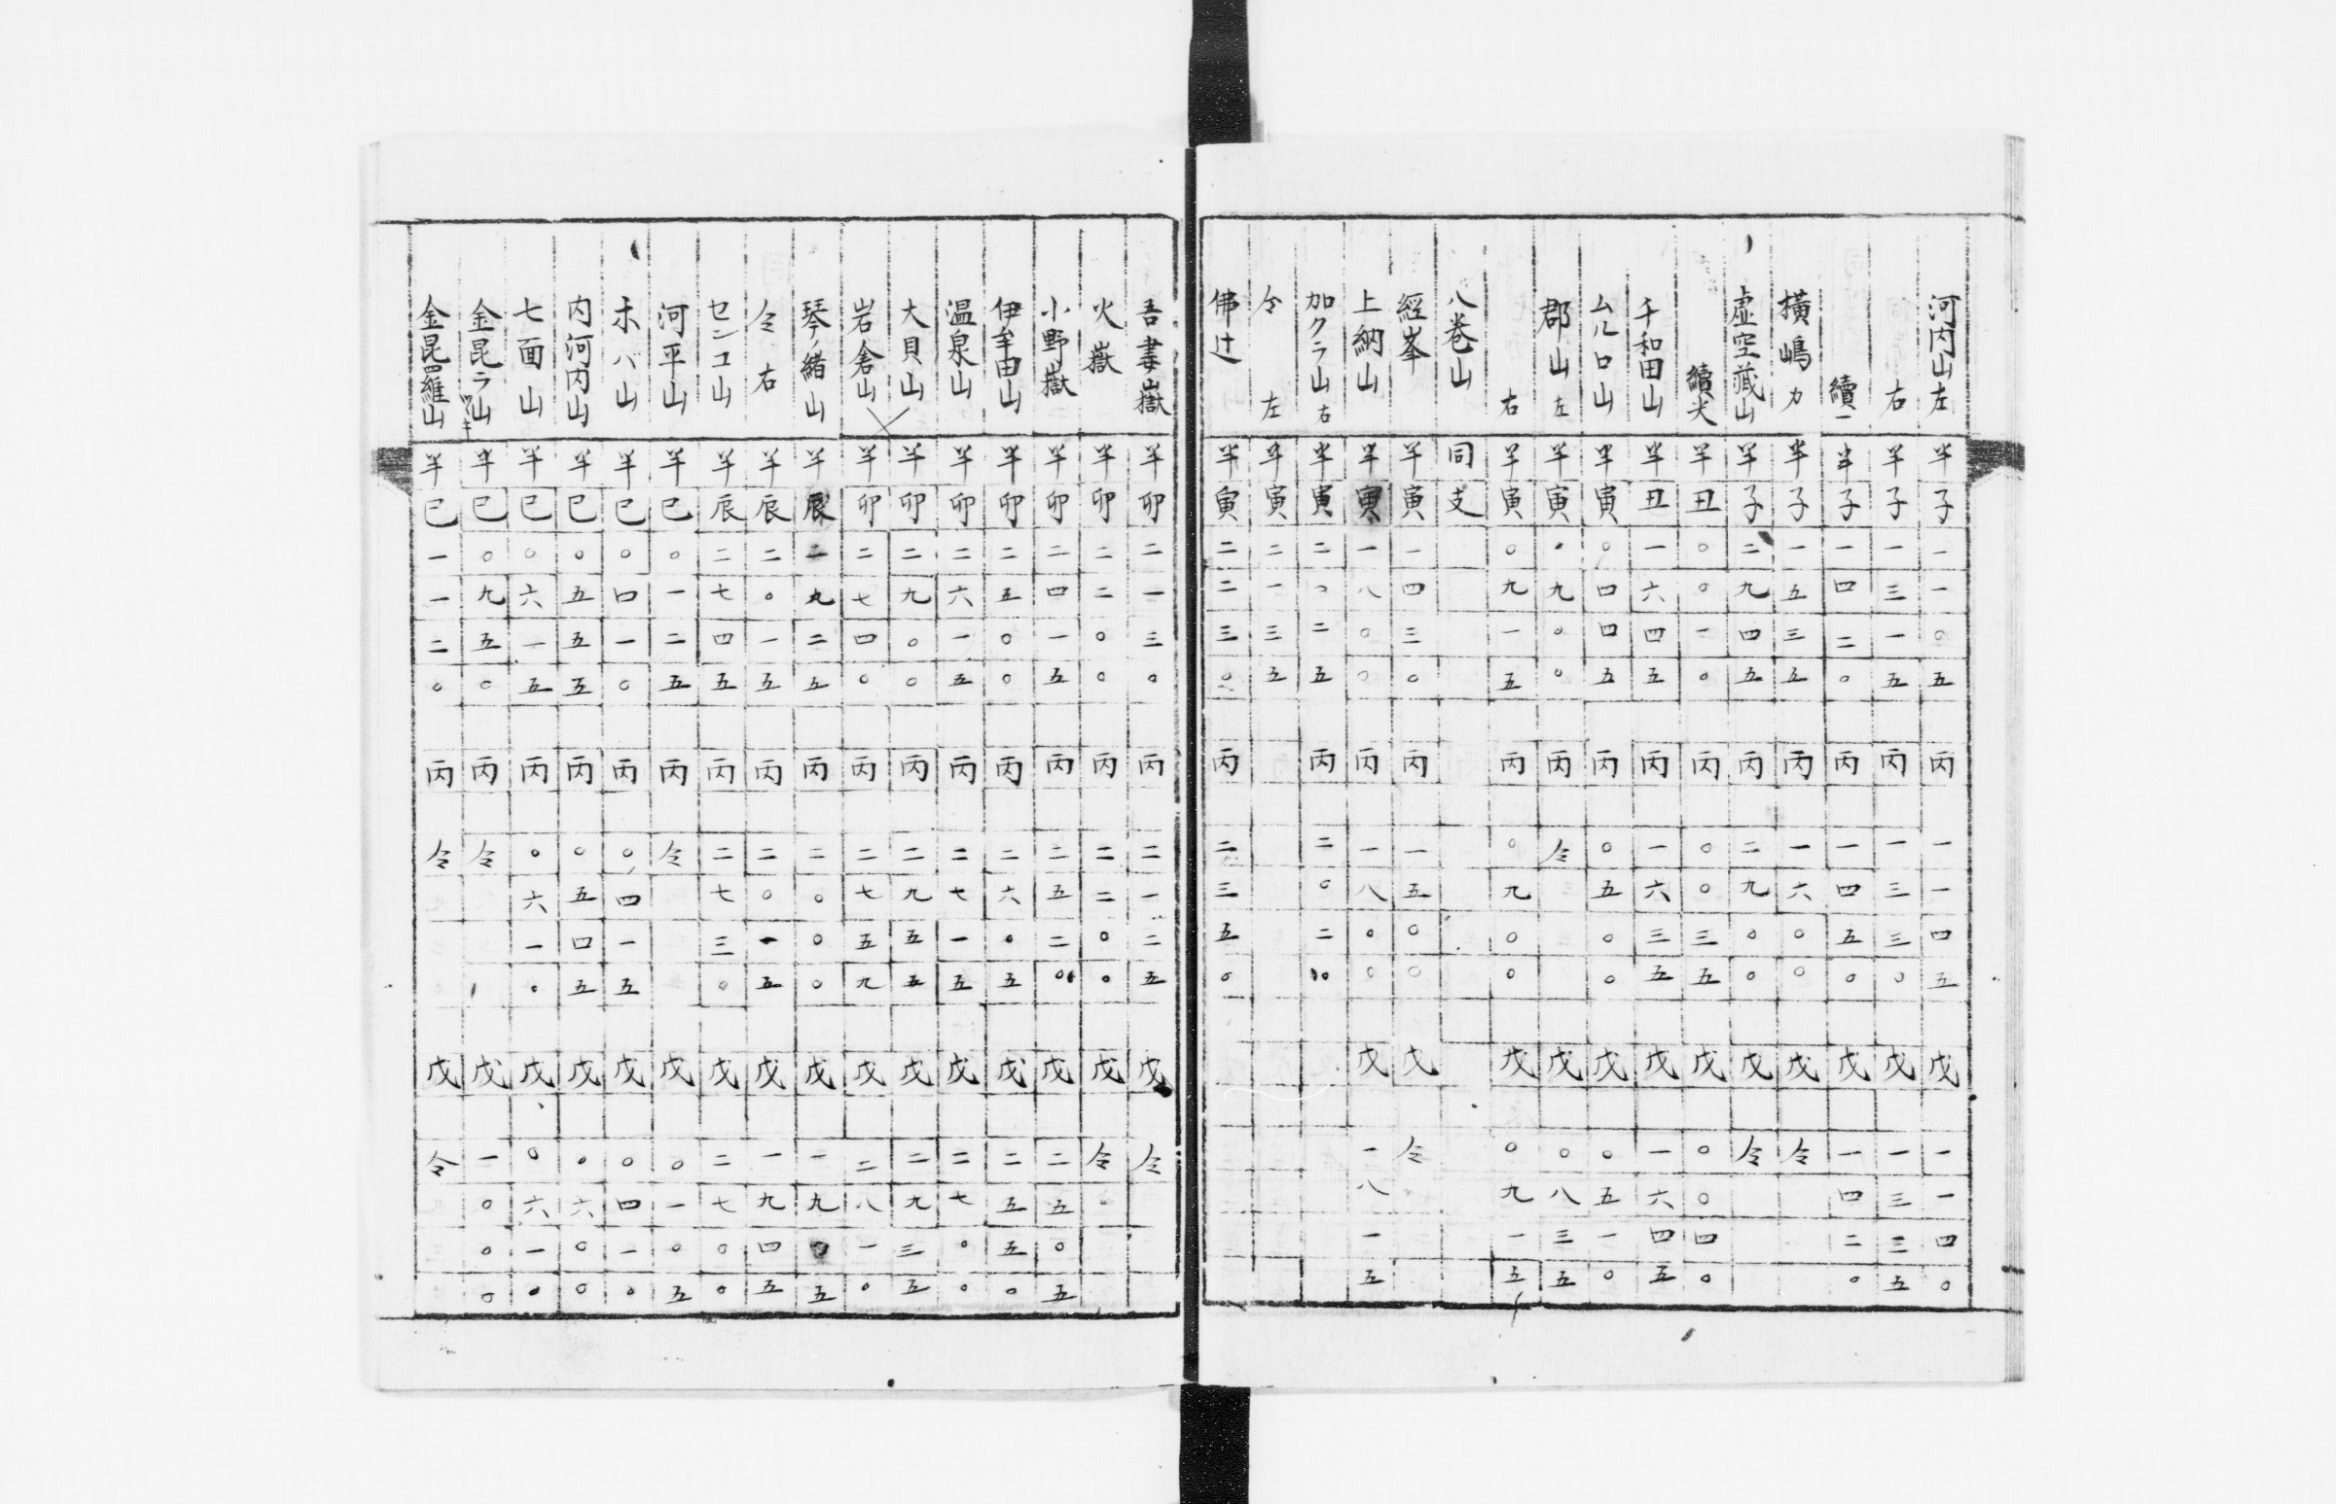 河内山左 半子一一〇五 丙 一一四五 戊 一一四〇
右 半子一三一五 丙 一三三〇 戊 一三三五
續一 半子一四二〇 丙 一四五〇 戊 一四二〇
横嶋カ 半子一五三五 丙 一六〇〇 戊 仝
虚空蔵山 半子二九四五 丙 二九〇〇 戊 仝
續犬 半丑〇〇一〇 丙 〇〇三五 戊 〇〇四〇
千和田山 半丑一六四五 丙 一六三五 戊 一六四五
ムルロ山 半寅〇四四五 丙 〇五〇〇 戊 〇五一〇
郡山左 半寅〇九〇〇 丙 仝 戊 〇八三五
右 半寅〇九一五 丙 〇九〇〇 戊 〇九一五
八巻山 同支
經峯 半寅一四三〇 丙 一五〇〇 戊 仝
上納山 半寅一八〇〇 丙 一八〇〇 戊 一八一五
加クラ山右 半寅二〇二五 丙 二〇二
仝左 半寅二一三五
佛辻 半寅二二三〇 丙 二三五〇
吾妻嶽 半卯二一三〇 丙 二一二五 戊 仝
火嶽 半卯二二〇〇 丙 二二〇〇 戊 仝
小野嶽 半卯二四一五 丙 二五二 戊 二五〇五
伊牟田山 半卯二五〇〇 丙 二六〇五 戊 二五五〇
温泉山 半卯二六一五 丙 二七一五 戊 二七〇〇
大貝山 半卯二九〇〇 丙 二九五五 戊 二九三五
岩倉山 半卯二七四〇 丙 二七五九 戊 二八一〇
琴ノ緒山 半辰一九二五 丙 二〇〇〇 戊 一九〇五
仝右 半辰二〇一五 丙 二〇一五 戊 一九四五
センコ山 半辰二七四五 丙 二七三〇 戊 二七〇〇
河平山 半巳〇一二五 丙 仝 戊 〇一〇五
ホバ山 半巳〇四一〇 丙 〇四一五 戊 〇四一〇
内河内山 半巳〇五五五 丙 〇五四五 戊 〇六〇〇
七面山 半巳〇六一五 丙 〇六一〇 戊 〇六一〇
金昆ラ山 半巳〇九五〇 丙 仝 戊 一〇〇〇
金昆羅山 半巳一一二〇 丙 仝 戊 仝